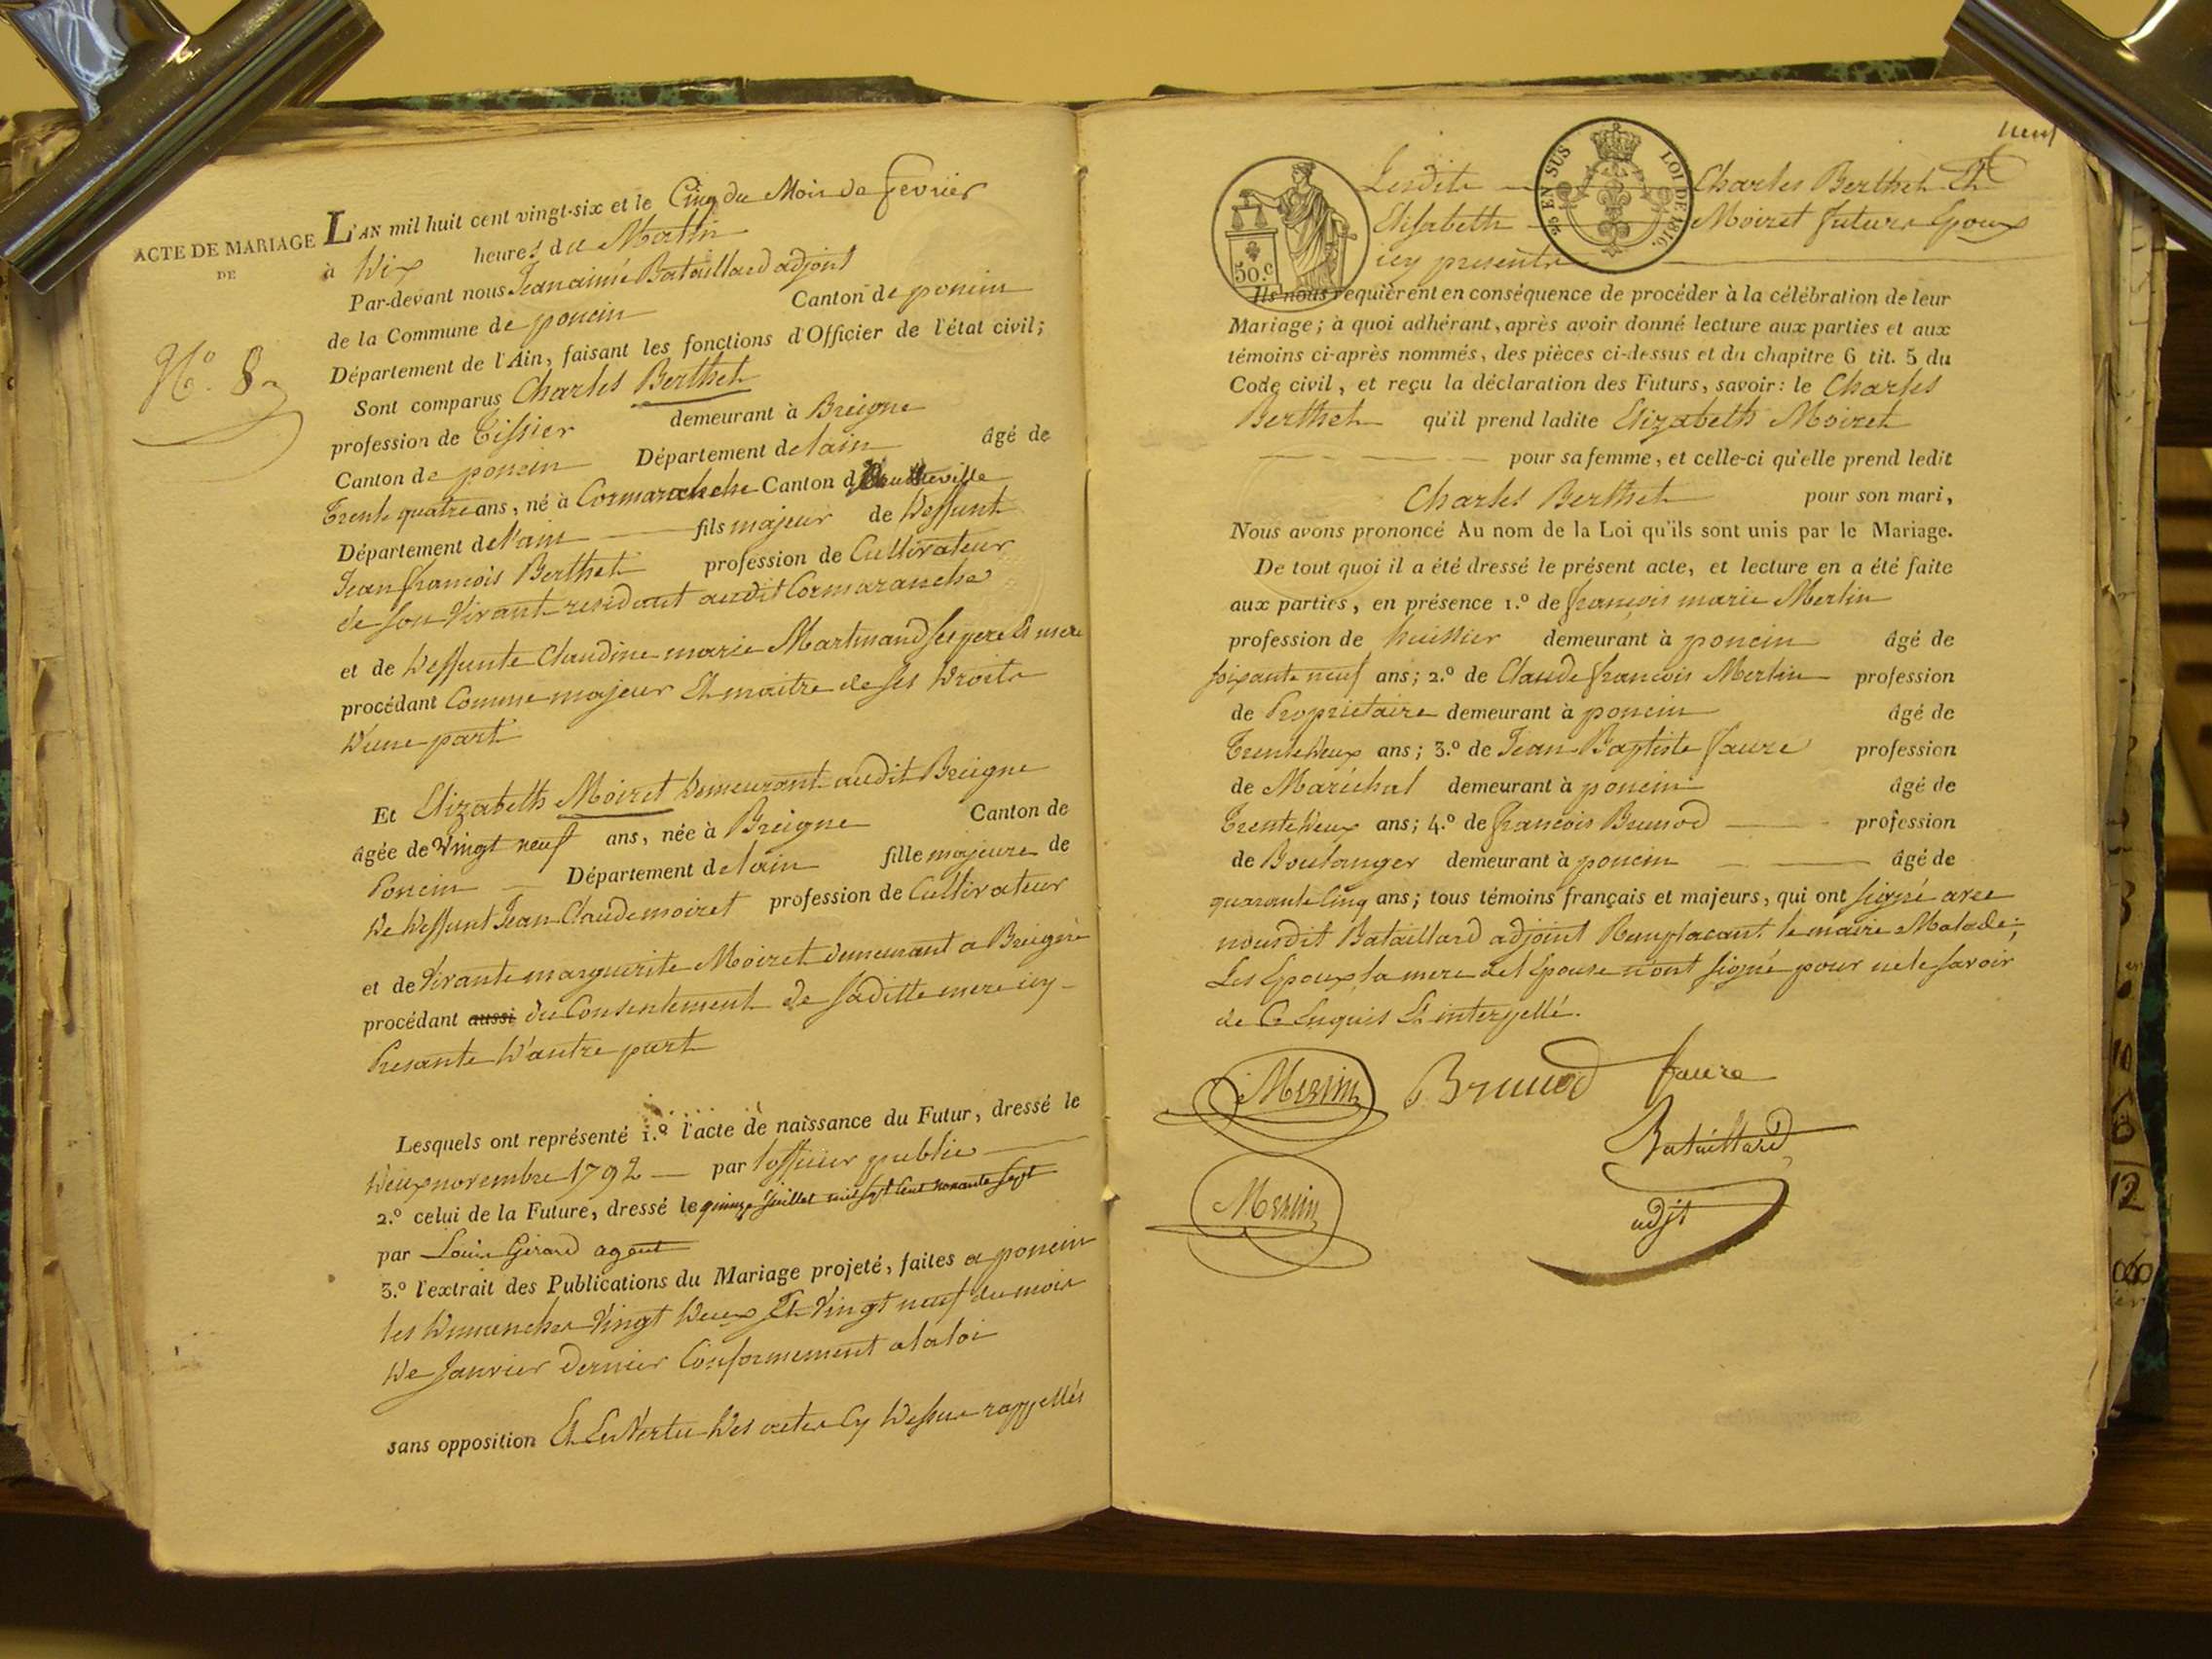 ACTE DE MARIAGE
DE
N.º 8
L'AN mil huit cent vingt-six et le Cinq du Mois de fevrier
à Dix heures du Matin
Par-devant nous Jean aimé Bataillard adjoint
de la Commune de poncin Canton de poncin
Département de l'Ain, faisant les fonctions d'Officier de l'état civil;
Sont comparus Charles Berthet
profession de Tissier demeurant à Breigne
Canton de poncin Département de lain âgé de
Trente quatre ans, né à Cormaranche Canton d'hauteville
Département de l'ain fils majeur de Deffunt
Jean françois Berthet profession de Cultivateur
de son Vivant residant audit Cormaranche
et de Deffunte Claudine marie Martinand ses pere Et mere
procédant Comme majeur Et maitre de ses Droits
D'une part
Et Elizabeth Moiret Demeurant audit Breigne
âgée de Vingt neuf ans, née à Breigne Canton de
Poncin Département de lain fille majeure de
De Deffunt Jean Claude moiret profession de Cultivateur
et de Vivante marguerite Moiret demeurant a Breigne
procédant aussi du Consentement de saditte mere icy
Presante D'autre part
Lesquels ont représenté 1.º l'acte de naissance du Futur, dressé le
Deux novembre 1792 par l'officier public
2.º celui de la Future, dressé le quinze juillet mil sept cent nonante sept
par Louis Girard agent
3.º l'extrait des Publications du Mariage projeté, faites a poncin
les Dimanches Vingt Deux Et Vingt neuf du mois
De Janvier dernier Conformement a la loi
sans opposition Et En Vertu Des actes Cy Dessus rappellés
neuf
50.c
EN SUS LOI DE 1816.
Lesdits Charles Berthet Et
Elisabeth Moiret futurs Epoux
icy presents
Ils nous requièrent en conséquence de procéder à la célébration de leur
Mariage; à quoi adhérant, après avoir donné lecture aux parties et aux
témoins ci-après nommés, des pièces ci-dessus et du chapitre 6 tit. 5 du
Code civil, et reçu la déclaration des Futurs, savoir: le Charles
Berthet qu'il prend ladite Elizabeth Moiret
pour sa femme, et celle-ci qu'elle prend ledit
Charles Berthet pour son mari,
Nous avons prononcé Au nom de la Loi qu'ils sont unis par le Mariage.
De tout quoi il a été dressé le présent acte, et lecture en a été faite
aux parties, en présence 1.º de françois marie Merlin
profession de huissier demeurant à poncin âgé de
soixante neuf ans; 2.º de Claude françois Merlin profession
de Propriétaire demeurant à poncin âgé de
Trente Deux ans; 3.º de Jean Baptiste faure profession
de Maréchal demeurant à poncin âgé de
Trente Deux ans; 4.º de françois Brunod profession
de Boulanger demeurant à poncin âgé de
quarante Cinq ans; tous témoins français et majeurs, qui ont signé avec
nousdit Bataillard adjoint Remplacant le maire Malade;
Les Epoux, la mere de l'Epouse n'ont signé pour ne le savoir
de Ce Enquis Et interpellé.
Merlin Brunod faure
Bataillard
Merlin
adjt